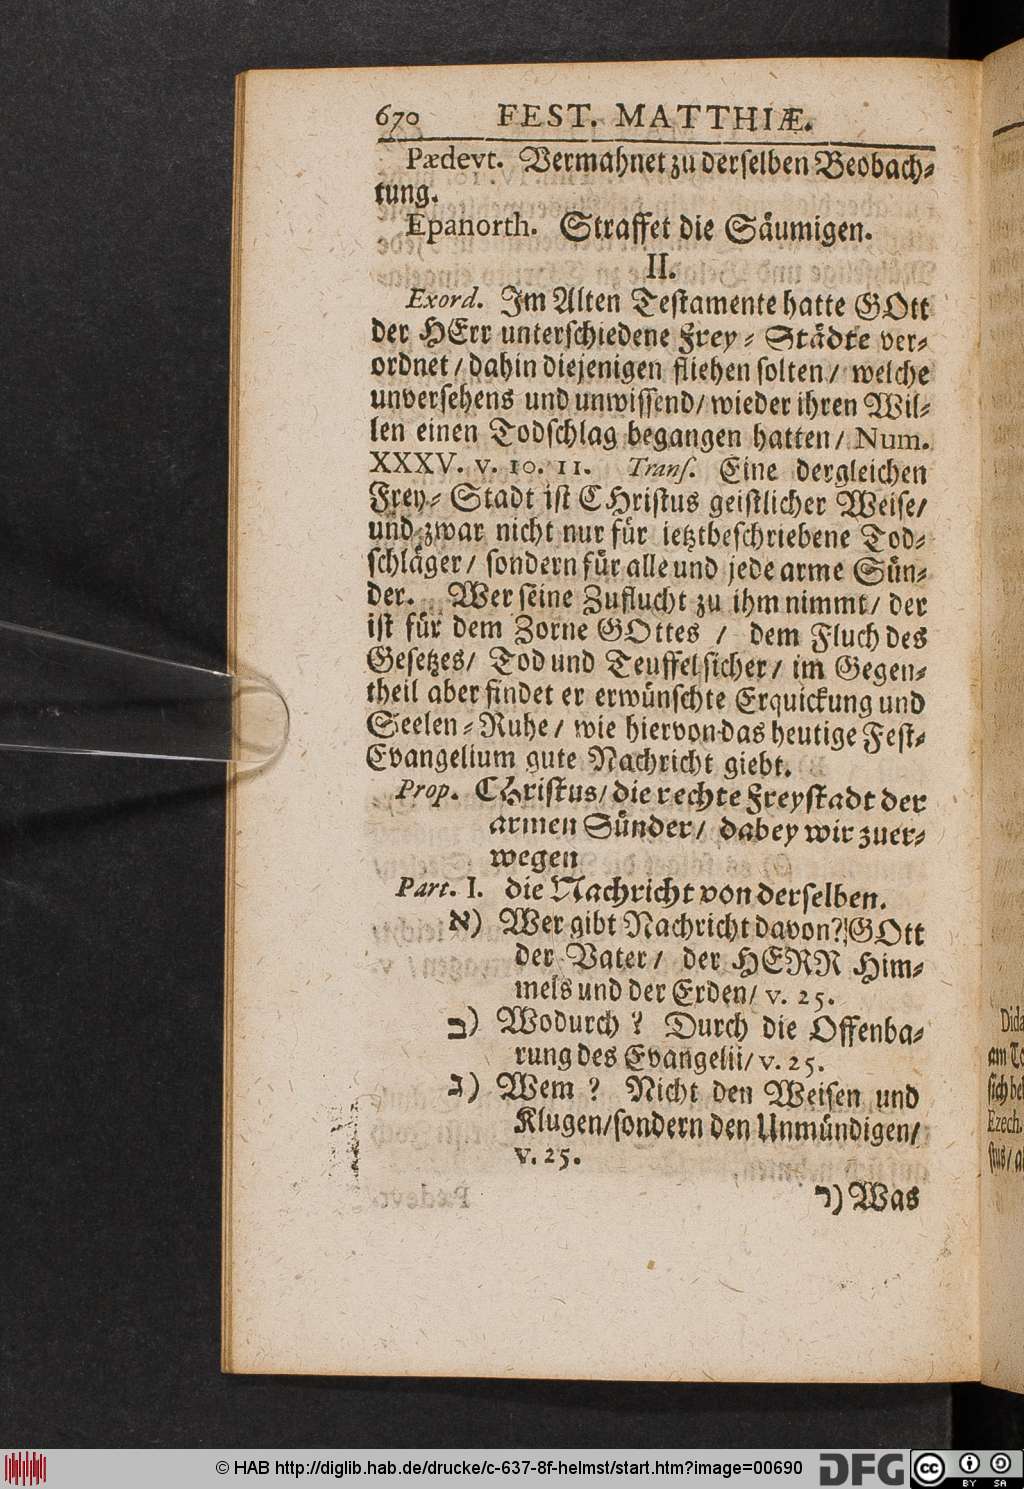 670 FEST. MATTHIÆ.
Pædevt. Vermahnet zu derselben Beobach-
tung.
Epanorth. Straffet die Säumigen.
II.
Exord. Im Alten Testamente hatte GOtt
der HErr unterschiedene Frey-Städte ver-
ordnet/dahin diejenigen fliehen solten/ welche
unversehens und unwissend/wieder ihren Wil-
len einen Todschlag begangen hatten/ Num.
XXXV. v. 10. 11. Trans. Eine dergleichen
Frey-Stadt ist CHristus geistlicher Weise/
und zwar nicht nur für ietztbeschriebene Tod-
schläger/ sondern für alle und jede arme Sün-
der. Wer seine Zuflucht zu ihm nimmt/ der
ist für dem Zorne GOttes / dem Fluch des
Gesetzes/ Tod und Teuffel sicher/ im Gegen-
theil aber findet er erwünschte Erquickung und
Seelen-Ruhe/ wie hiervon das heutige Fest-
Evangelium gute Nachricht giebt.
Prop. CHristus/die rechte Freystadt der
armen Sünder/ dabey wir zuer-
wegen
Part. I. die Nachricht von derselben.
א) Wer gibt Nachricht davon? GOtt
der Vater/ der HERR Him-
mels und der Erden/ v. 25.
ב) Wodurch? Durch die Offenba-
rung des Evangelii/ v. 25.
ג) Wem? Nicht den Weisen und
Klugen/sondern den Unmündigen/
v. 25.
ד) Was
Dida
am To
sich be
Ezech.
stus/ a
© HAB http://diglib.hab.de/drucke/c-637-8f-helmst/start.htm?image=00690 DFG cc BY SA